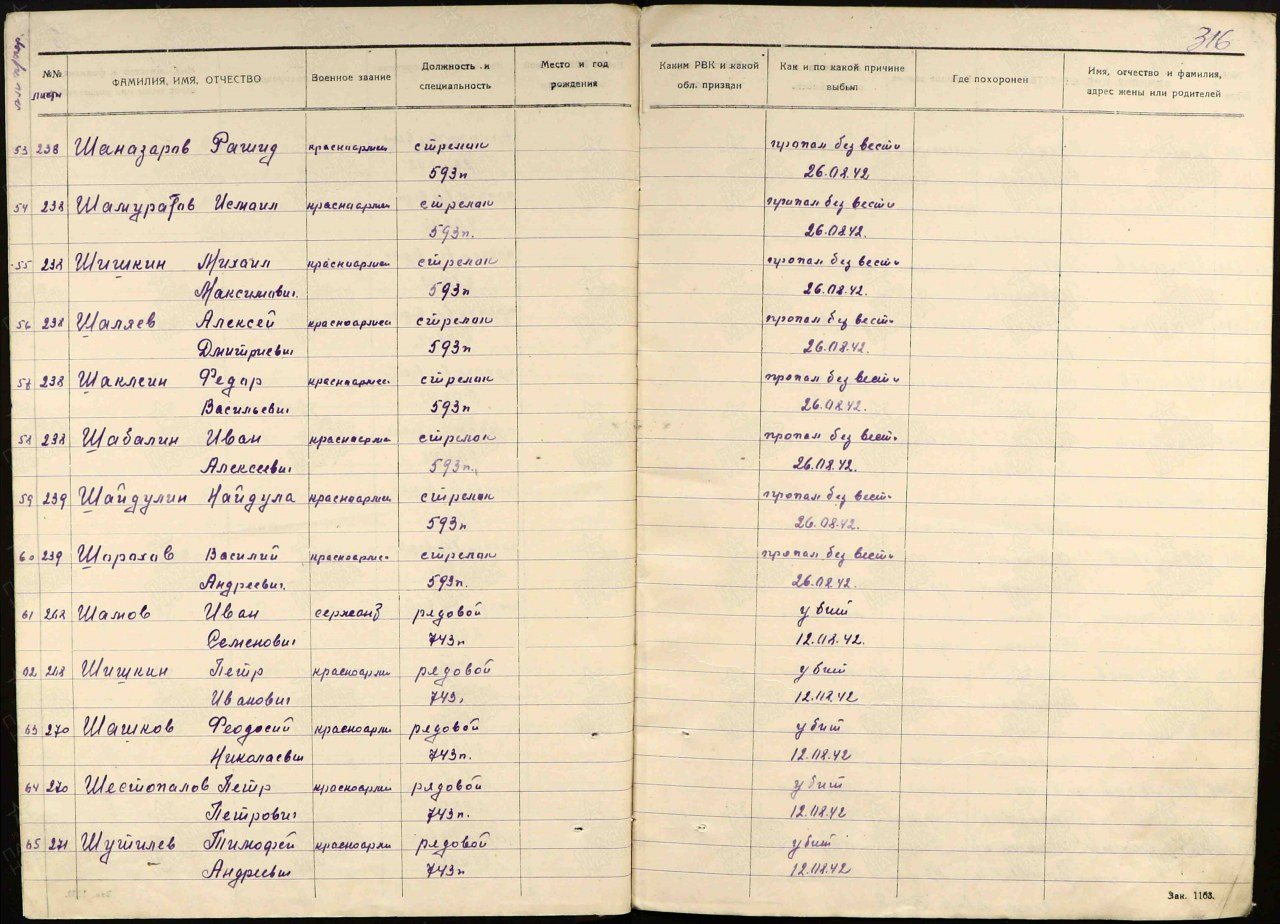 316
№№ листа
ФАМИЛИЯ, ИМЯ, ОТЧЕСТВО
Военное звание
Должность и специальность
Место и год рождения
Каким РВК и какой обл. призван
Как и по какой причине выбыл
Где похоронен
Имя, отчество и фамилия, адрес жены или родителей
53 238 Шаназаров Рашид красноармеец стрелок пропал без вести
593п 26.08.42
54 238 Шамуратов Исмаил красноармеец стрелок пропал без вести
593п. 26.08.42.
55 238 Шишкин Михаил красноармеец стрелок пропал без вести
Максимович. 593п 26.08.42.
56 238 Шаляев Алексей красноармеец стрелок пропал без вести
Дмитриевич 593п 26.08.42.
57 238 Шаклеин Федор красноармеец стрелок пропал без вести
Васильевич 593п 26.08.42.
58 238 Шабалин Иван красноармеец стрелок пропал без вести
Алексеевич 593п. 26.08.42.
59 239 Шайдулин Найдула красноармеец стрелок пропал без вести
593п 26.08.42.
60 239 Шорохов Василий красноармеец стрелок пропал без вести
Андреевич. 593п. 26.08.42.
61 Шамов Иван сержант рядовой убит
Семенович 743п 12.08.42.
62 Шишкин Петр красноармеец рядовой убит
Иванович 743п 12.08.42
63 270 Шашков Феодосий красноармеец рядовой убит
Николаевич 743п. 12.08.42
64 270 Шестопалов Петр красноармеец рядовой убит
Петрович 743п. 12.08.42
65 271 Шутилев Тимофей красноармеец рядовой убит
Андреевич 743п 12.08.42
Зак. 1163.